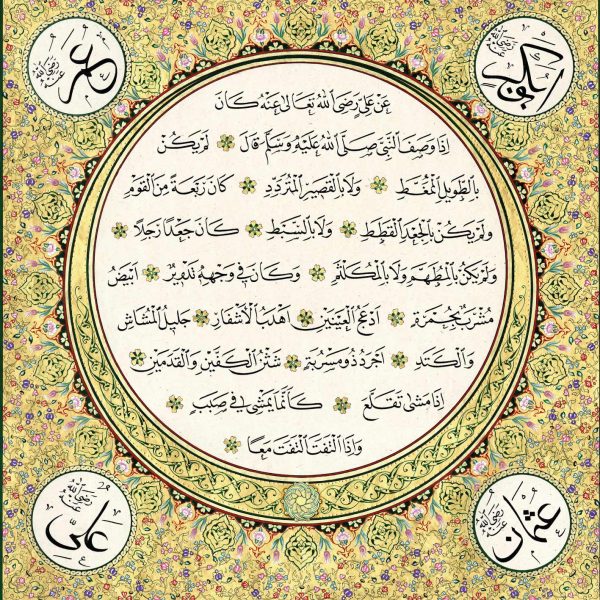 ابو بكر رضي الله عنه
عمر رضي الله عنه
عَنْ عَلِيٍّ رَضِيَ اللهُ تَعَالَى عَنْهُ كَانَ
اِذَا وَصَفَ النَّبِيَّ صَلَّى اللهُ عَلَيْهِ وَسَلَّمَ قَالَ لَمْ يَكُنْ
بِالطَّوِيلِ الْمُمَغَّطِ وَلَا بِالْقَصِيرِ الْمُتَرَدِّدِ كَانَ رَبْعَةً مِنَ الْقَوْمِ
وَلَمْ يَكُنْ بِالْجَعْدِ الْقَطَطِ وَلَا بِالسَّبِطِ كَانَ جَعْدًا رَجِلًا
وَلَمْ يَكُنْ بِالْمُطَهَّمِ وَلَا بِالْمُكَلْثَمِ وَكَانَ فِي وَجْهِهِ تَدْوِيرٌ اَبْيَضُ
مُشْرَبٌ بِحُمْرَةٍ اَدْعَجُ الْعَيْنَيْنِ اَهْدَبُ الْاَشْفَارِ جَلِيلُ الْمُشَاشِ
وَالْكَتَدِ اَجْرَدُ ذُو مَسْرُبَةٍ شَثْنُ الْكَفَّيْنِ وَالْقَدَمَيْنِ
اِذَا مَشَى تَقَلَّعَ كَاَنَّمَا يَمْشِي فِي صَبَبٍ
وَاِذَا الْتَفَتَ الْتَفَتَ مَعًا
عثمان رضي الله عنه
علي رضي الله عنه